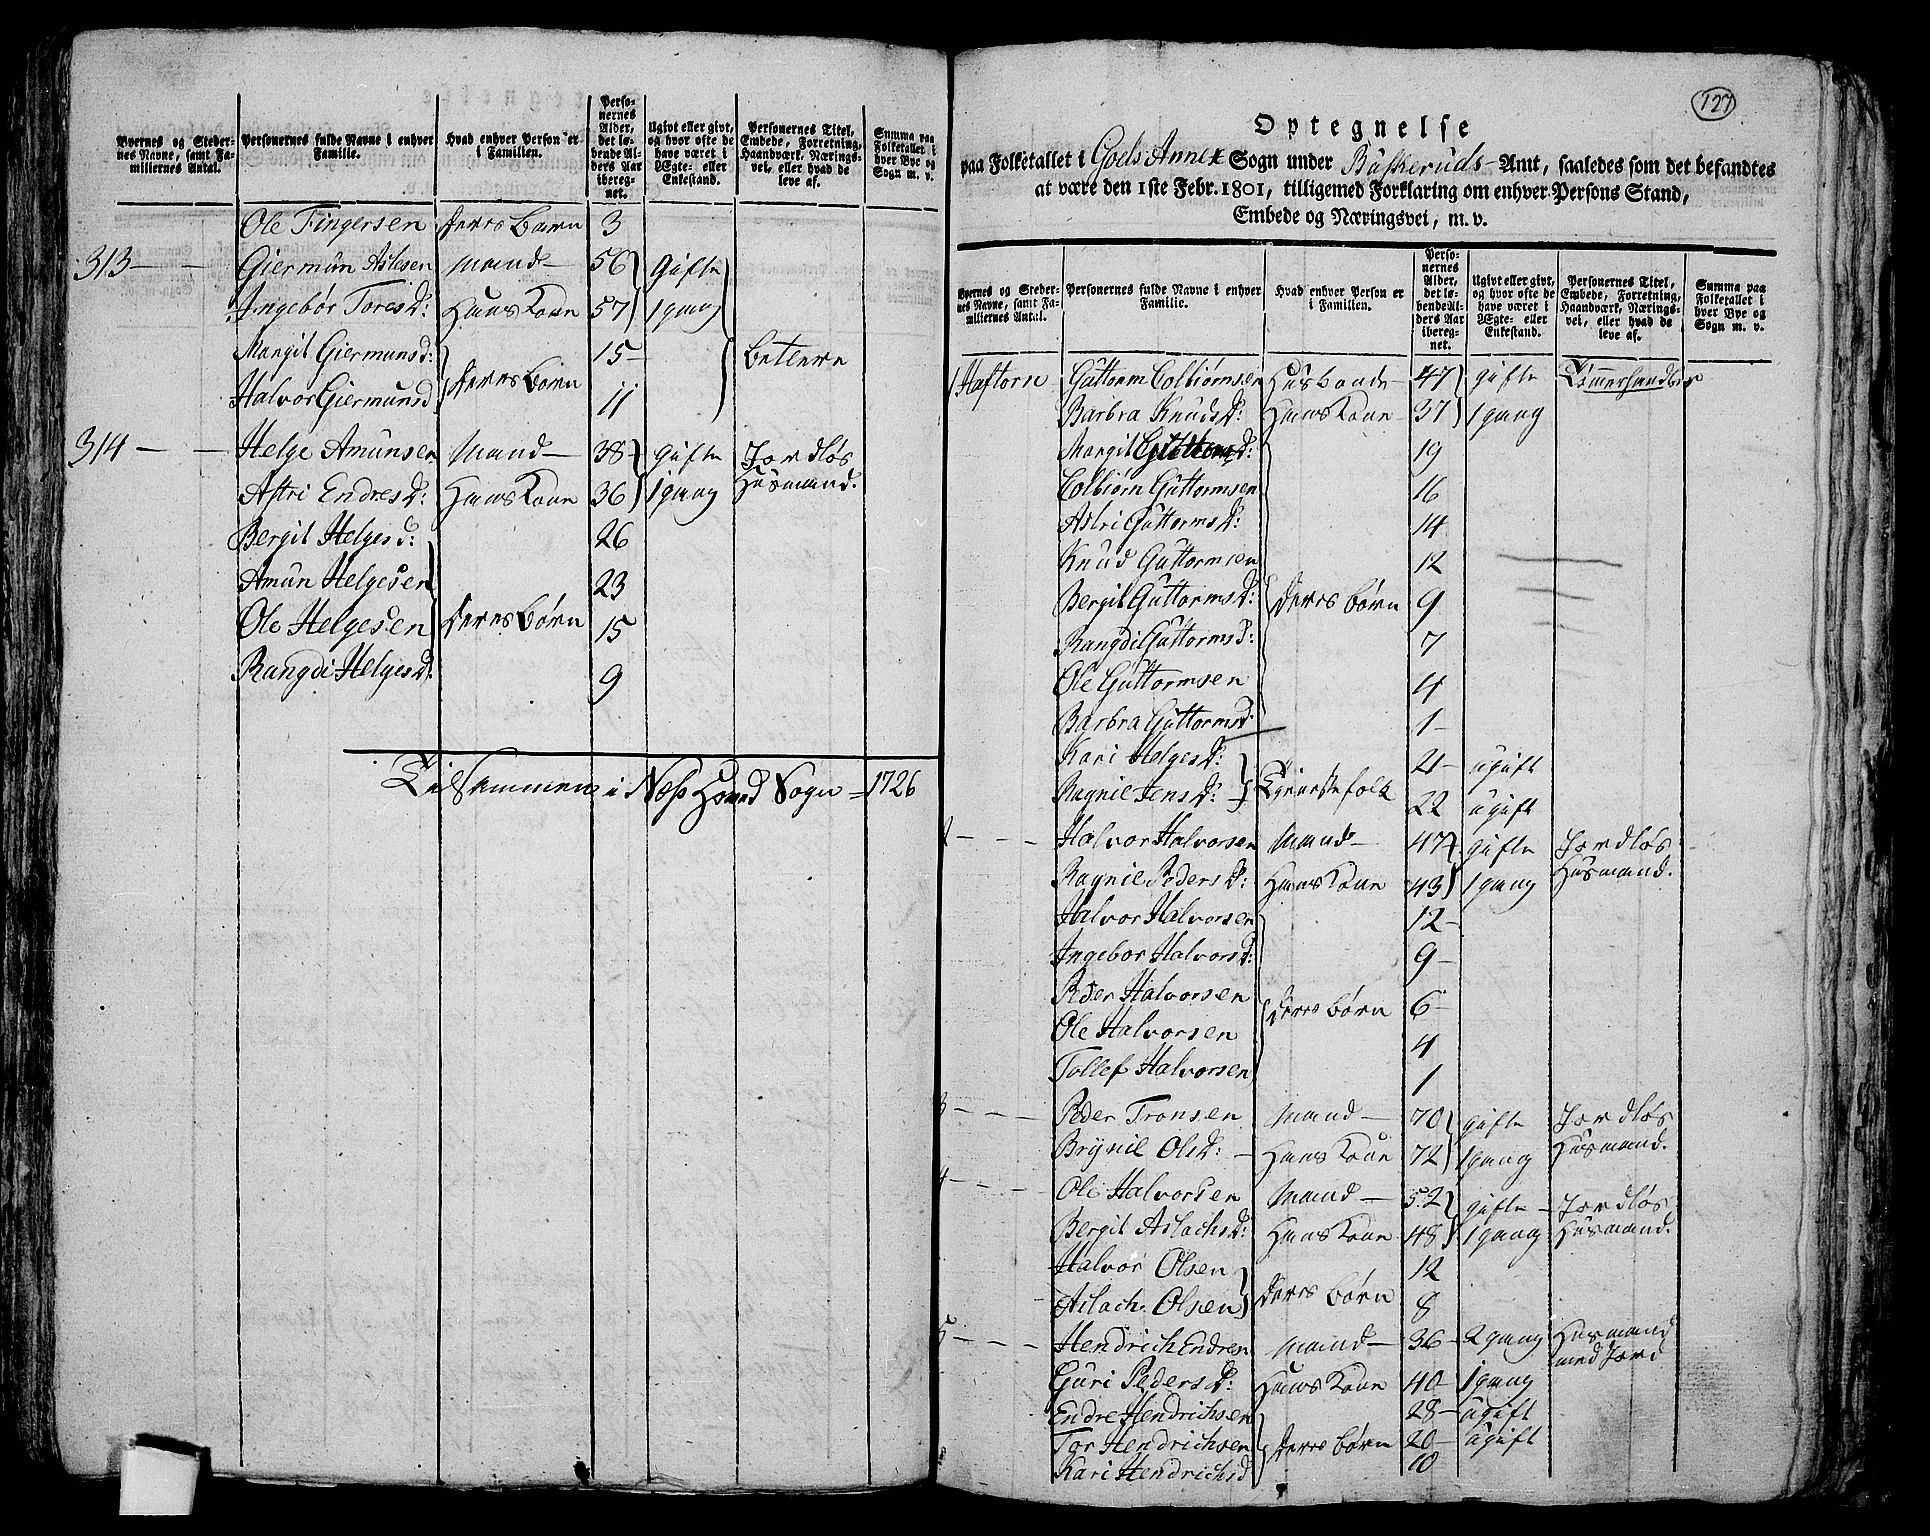 Byernes og Stedernes Navne, samt Familiernes Antal.
Personernes fulde Navne i enhver Familie.
Hvad enhver Person er i Familien.
Personernes Alder, det løbende Alders Aar iberegnet.
Ugivt eller givt, og hvor ofte de have været i Ægte- eller Enkestand.
Personernes Titel, Embede, Forretning, Haandværk, Næringsvei, eller hvad de leve af.
Summa paa Folketallet i hver Bye og Sogn m. v.
Ole Fingersen Deres Barn 3
313 Giermün Aslesen Mand 56 gifte
Ingebor Tores D: Hans Kone 57 1 gang
Margit Giermunds D: 15 betlere
Halvor Giermunds Deres Børn 11
314 Helge Amünsen Mand 38 gifte Jordløs
Astri Endres D: Hans Kone 36 1 gang Husmand.
Bergit Helges D: 26
Amün Helgesen 23
Ole Helgesen Deres Børn 15
Rangdi Helges D: 9
Tilsammen i Næss Hoved Sogn = 1726
127
Optegnelse
paa Folketallet i Gols Annex Sogn under Buskeruds Amt, saaledes som det befandtes
at være den 1ste Febr. 1801, tilligemed Forklaring om enhver Persons Stand,
Embede og Næringsvei, m. v.
Byernes og Stedernes Navne, samt Familiernes Antal.
Personernes fulde Navne i enhver Familie.
Hvad enhver Person er i Familien.
Personernes Alder, det løbende Alders Aar iberegnet.
Ugivt eller givt, og hvor ofte de have været i Ægte- eller Enkestand.
Personernes Titel, Embede, Forretning, Haandværk, Næringsvei, eller hvad de leve af.
Summa paa Folketallet i hver Bye og Sogn m. v.
1 Haftorn Guttorm Colbiørnsen Husbonde 47 gifte Tømmerhandler
Barbra Knuds D: Hans Kone 37 1 gang
Margit Guttorms D: 19
Colbiørn Guttormsen 16
Astri Guttorms D: 14
Knud Guttormsen 12
Bergit Guttorms D: Deres Børn 9
Rangdi Guttorms D: 7
Ole Guttormsen 4
Barbra Guttorms D: 1
Kari Helges D: 21 ugift
Ragnil Jens D: Tjenestefolk 22 ugift
2 Halvor Halvorsen Mand 47 gifte Jordløs
Ragnil Peders D: Hans Kone 43 1 gang Husmand.
Halvor Halvorsen 12
Ingebor Halvors D: 9
Peder Halvorsen Deres Børn 6
Ole Halvorsen 4
Tollef Halvorsen 1
3 Peder Tronsen Mand 70 gifte Jordløs
Brynil Ols D: Hans Kone 72 1 gang Husmand.
4 Ole Halvorsen Mand 52 gifte Jordløs
Bergit Aslachs D: Hans Kone 48 1 gang Husmand.
Halvor Olsen 12
Aslach Olsen Deres Børn 8
5 Hendrich Endren Mand 36 2 gang Husmand med Jord
Guri Peders D: Hans Kone 40 1 gang
Endre Hendrichsen 28 ugift
Tor Hendrichsen Deres Børn 20 ugift
Kari Hendrichs D 10